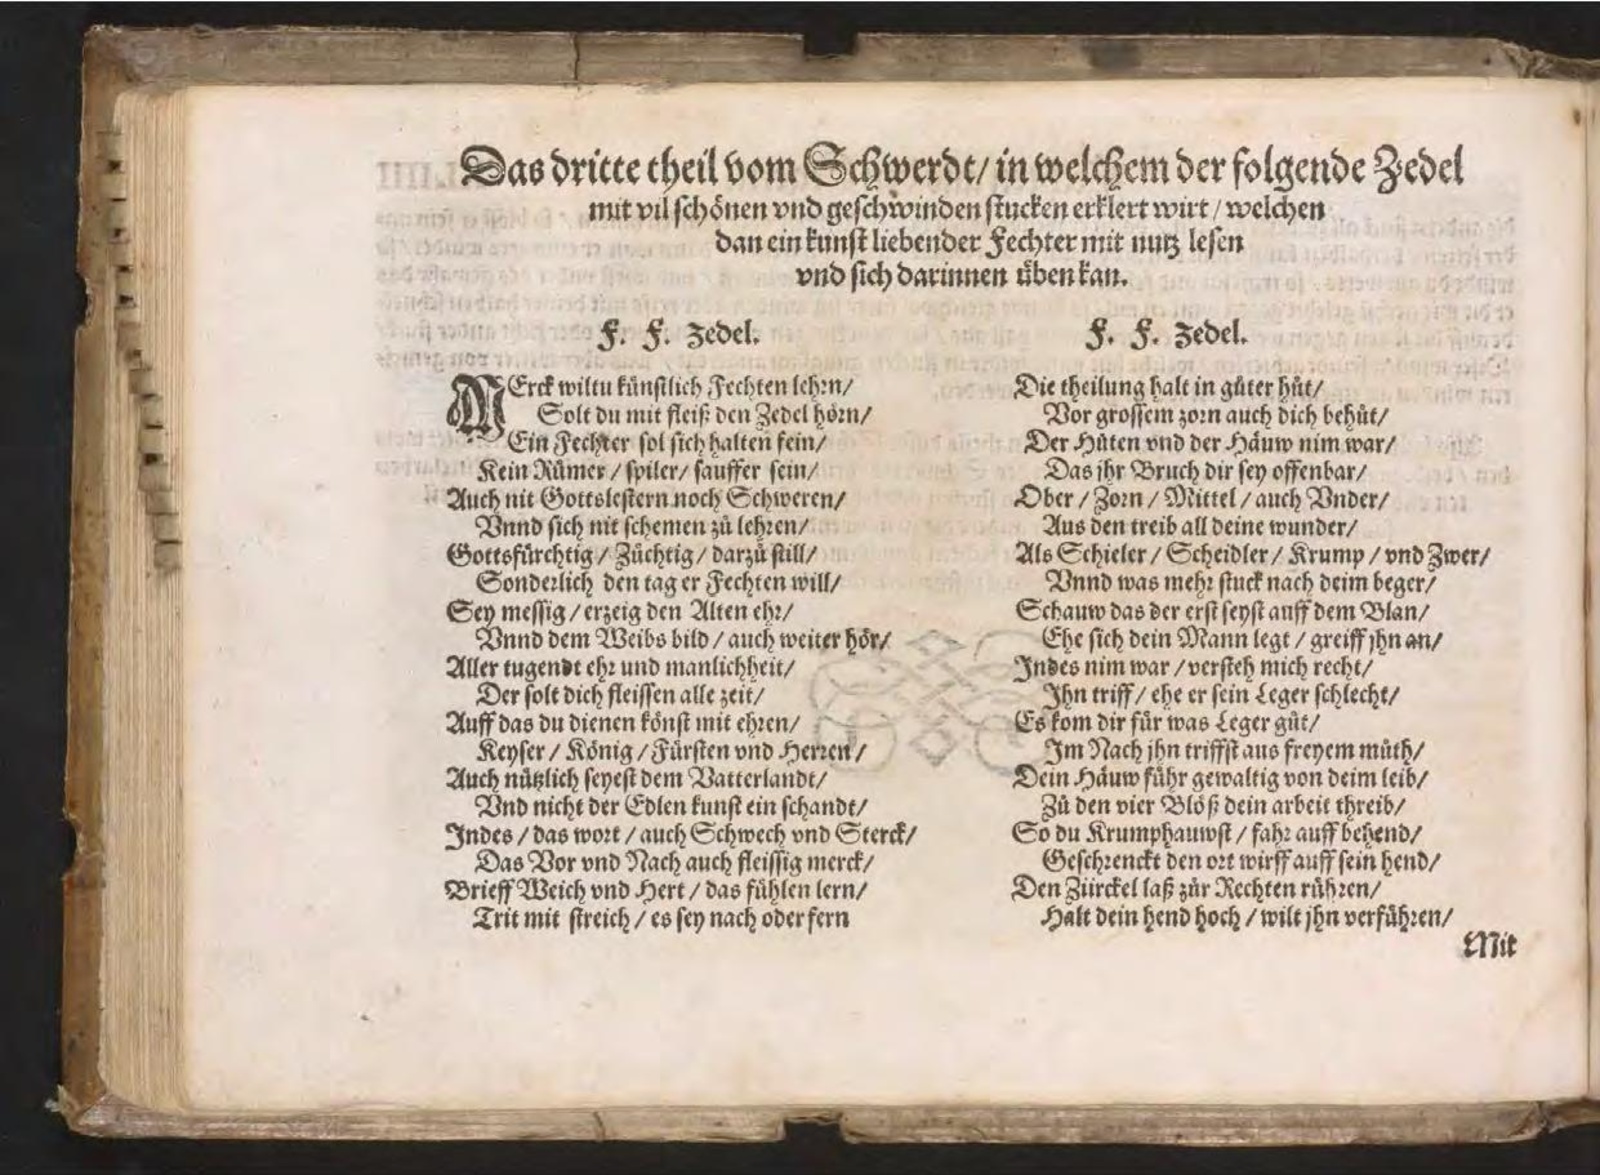 Das dritte theil vom Schwerdt/ in welchem der folgende Zedel
mit vil schönen vnd geschwinden stucken erklert wirt / welchen
dan ein kunst liebender Fechter mit nutz lesen
vnd sich darinnen üben kan.
F. F. Zedel.
MErck wiltu künstlich Fechten lehrn/
Solt du mit fleiß den Zedel hörn/
Ein Fechter sol sich halten fein/
Kein Rümer / spiler/ sauffer sein/
Auch nit Gottslestern noch Schweren/
Vnnd sich nit schemen zů lehren/
Gottsfürchtig / Züchtig / darzů still/
Sonderlich den tag er Fechten will/
Sey messig / erzeig den Alten ehr/
Vnnd dem Weibs bild / auch weiter hör/
Aller tugendt ehr und manlichheit/
Der solt dich fleissen alle zeit/
Auff das du dienen könst mit ehren/
Keyser / König / Fürsten vnd Herren /
Auch nützlich seyest dem Vatterlandt/
Vnd nicht der Edlen kunst ein schandt/
Indes / das wort / auch Schwech vnd Sterck/
Das Vor vnd Nach auch fleissig merck/
Brieff Weich vnd Hert / das fühlen lern/
Trit mit streich / es sey nach oder fern
F. F. Zedel.
Die theilung halt in gůter hůt/
Vor grossem zorn auch dich behůt/
Der Hůten vnd der Häuw nim war/
Das jhr Bruch dir sey offenbar/
Ober / Zorn / Mittel / auch Vnder/
Aus den treib all deine wunder/
Als Schieler / Scheidler / Krump / vnd Zwer/
Vnnd was mehr stuck nach deim beger/
Schauw das der erst seyst auff dem Blan/
Ehe sich dein Mann legt / greiff jhn an/
Indes nim war / versteh mich recht/
Ihn triff / ehe er sein Leger schlecht/
Es kom dir für was Leger gůt/
Im Nach jhn triffst aus freyem můth/
Dein Häuw führ gewaltig von deim leib/
Zů den vier Blöß dein arbeit threib/
So du Krumphauwst / fahr auff behend/
Geschrenckt den ort wirff auff sein hend/
Den Ziirckel laß zůr Rechten rühren/
Halt dein hend hoch / wilt jhn verführen/
Mit